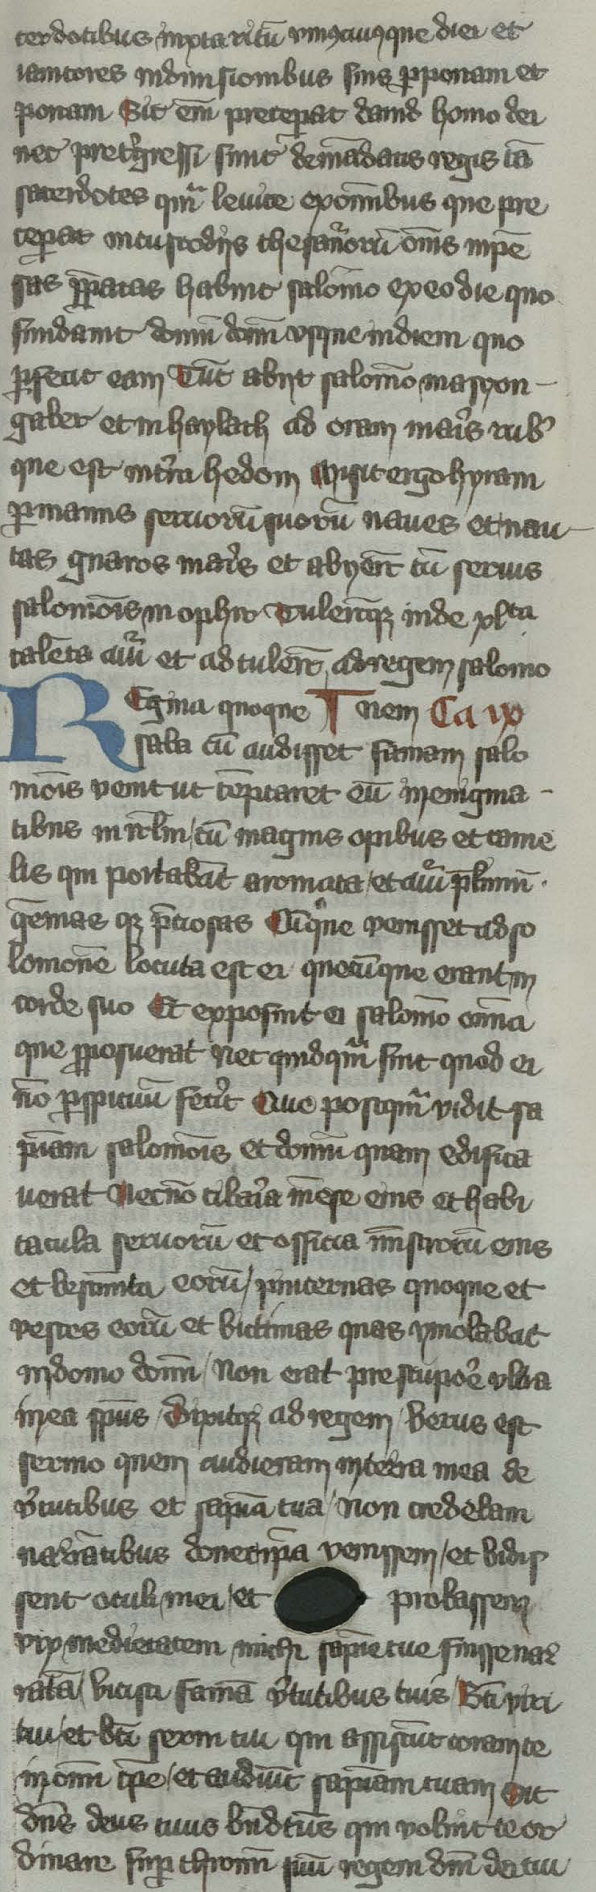 cerdotibus iuxta ritū uniꝰcuiusque diei et
ianitores in diuisionibus suis ꝑ portam et
portam Sic em̄ preceperat dauid homo dei
nec pret̾gressi sunt de mādatis regis tā
sacerdotes qm̄ leuite ex omnibus que pre
ceperat in custodijs thesaurorū om̄s inpē
sas p̄paratas habuit salomo ex eo die quo
fundauit domū dom̄ usque in diem quo
ꝑfecit eam Tūc abijt salomō in asyon
gaber et in haylath ad oram maris rubr̄
que est in terra hedom Misit ergo hyram
ꝑ manus seruorū suorū naues et nau
tas gnaros maris et abyerūt cū seruis
salomōis in ophir Tulerūtqꝫ inde
talēta auri et adtulerūt ad regem salomo
REgina quoque nem Ca ix
saba cū audisset famam salo
mōis venit ut tēptaret eū in enigma
tibus in irlm̄ cū magnis opibus et came
lis qui portabāt aromata et auri plurimū
gēmas qꝫ p̄ciosas Cūque venisset ad sa
lomonē locuta est ei quecūque erant in
corde suo Et exposuit ei salomō om̄ia
que p̄posuerat Nec quidqm̄ fuit quod ei
nō ꝑspicuū fecit Que postqm̄ vidit sa
piē̄am salomōis et domū quam edifica
uerat Necnō cibaria mēse eius et habi
tacula seruorū et officia mīstrorū eius
et vestimēta eorū pincernas quoque et
vestes eorū et victimas quas ymolabat
in domo domī Non erat pre stupore ultra
in ea sp̄us Dixitqꝫ ad regem Verus est
sermo quem audieram in terra mea de
v̾tutibus et sapīa tua Non credebam
narrātibus donec ip̄a venissem et vidis
sent oculi mei et probassem
vix medietatem michi sapiē tue fuisse nar
ratā vicisti famā v̾tutibus tuis Bt̄i viri
tui et bt̄i serui tui qui assistūt coram te
in om̄i tp̄e et audiūt sapīam tuam Sit
dn̄s deus tuus bn̄dictus qui voluit te or
dinare suꝑ thronū suū regem dn̄i dei tui